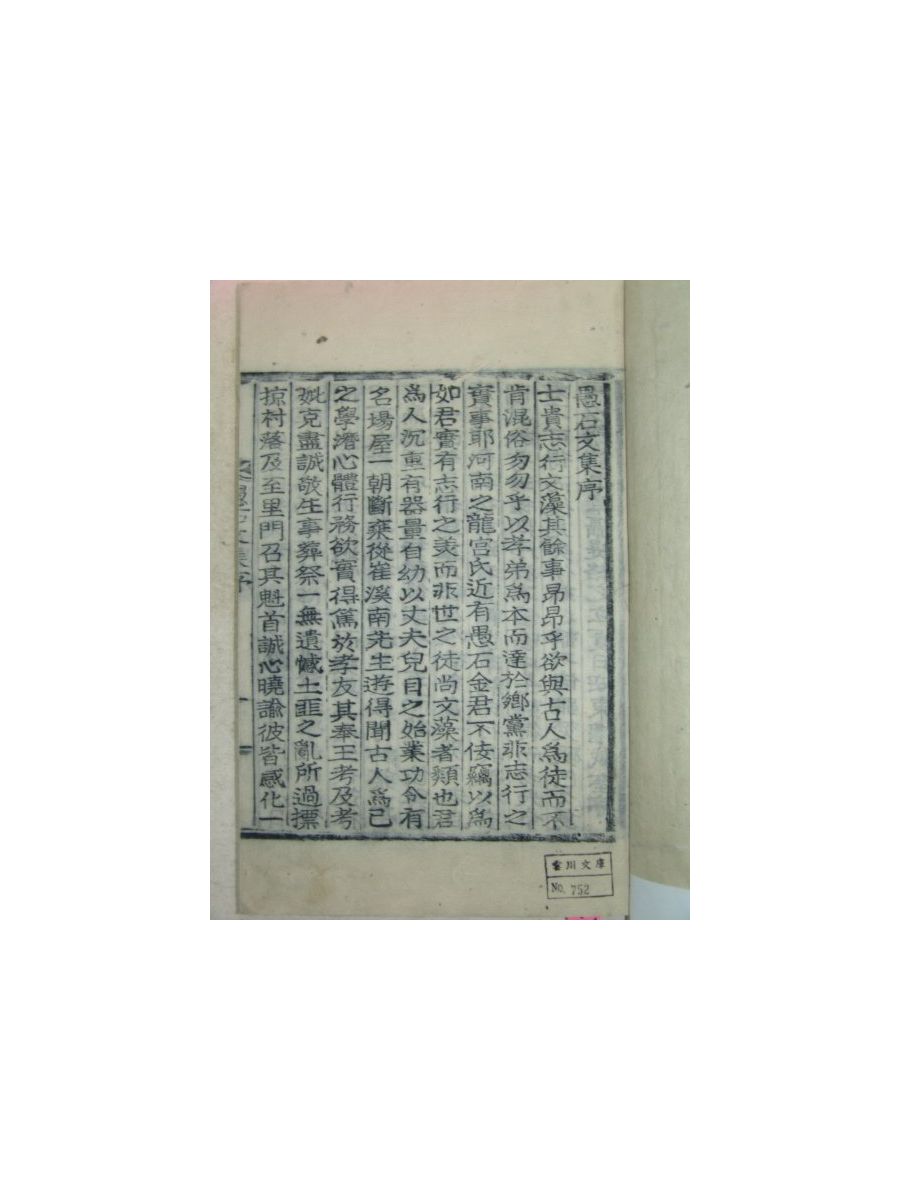 愚石文集序
士貴志行文藻其餘事昂昂乎欲與古人爲徒而不
肯混俗勿勿乎以孝弟爲本而達於鄉黨非志行之
實事耶河南之龍宮氏近有愚石金君不佞竊以爲
如君實有志行之美而非世之徒尚文藻者類也君
爲人沉重有器量自幼以丈夫兒目之始業功令有
名場屋一朝斷棄從崔溪南先生遊得聞古人爲己
之學潛心體行務欲實得篤於孝友其奉王考及考
妣克盡誠敬生事葬祭一無遺憾土匪之亂所過摽
掠村落及至里門召其魁首誠心曉諭彼皆感化一
愚石文集序
一
川文庫
No. 752